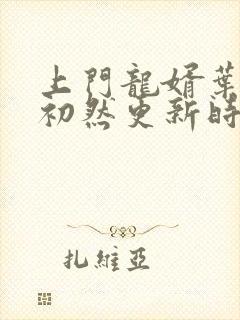 上門龍婿葉
初然更新時
扎維亞